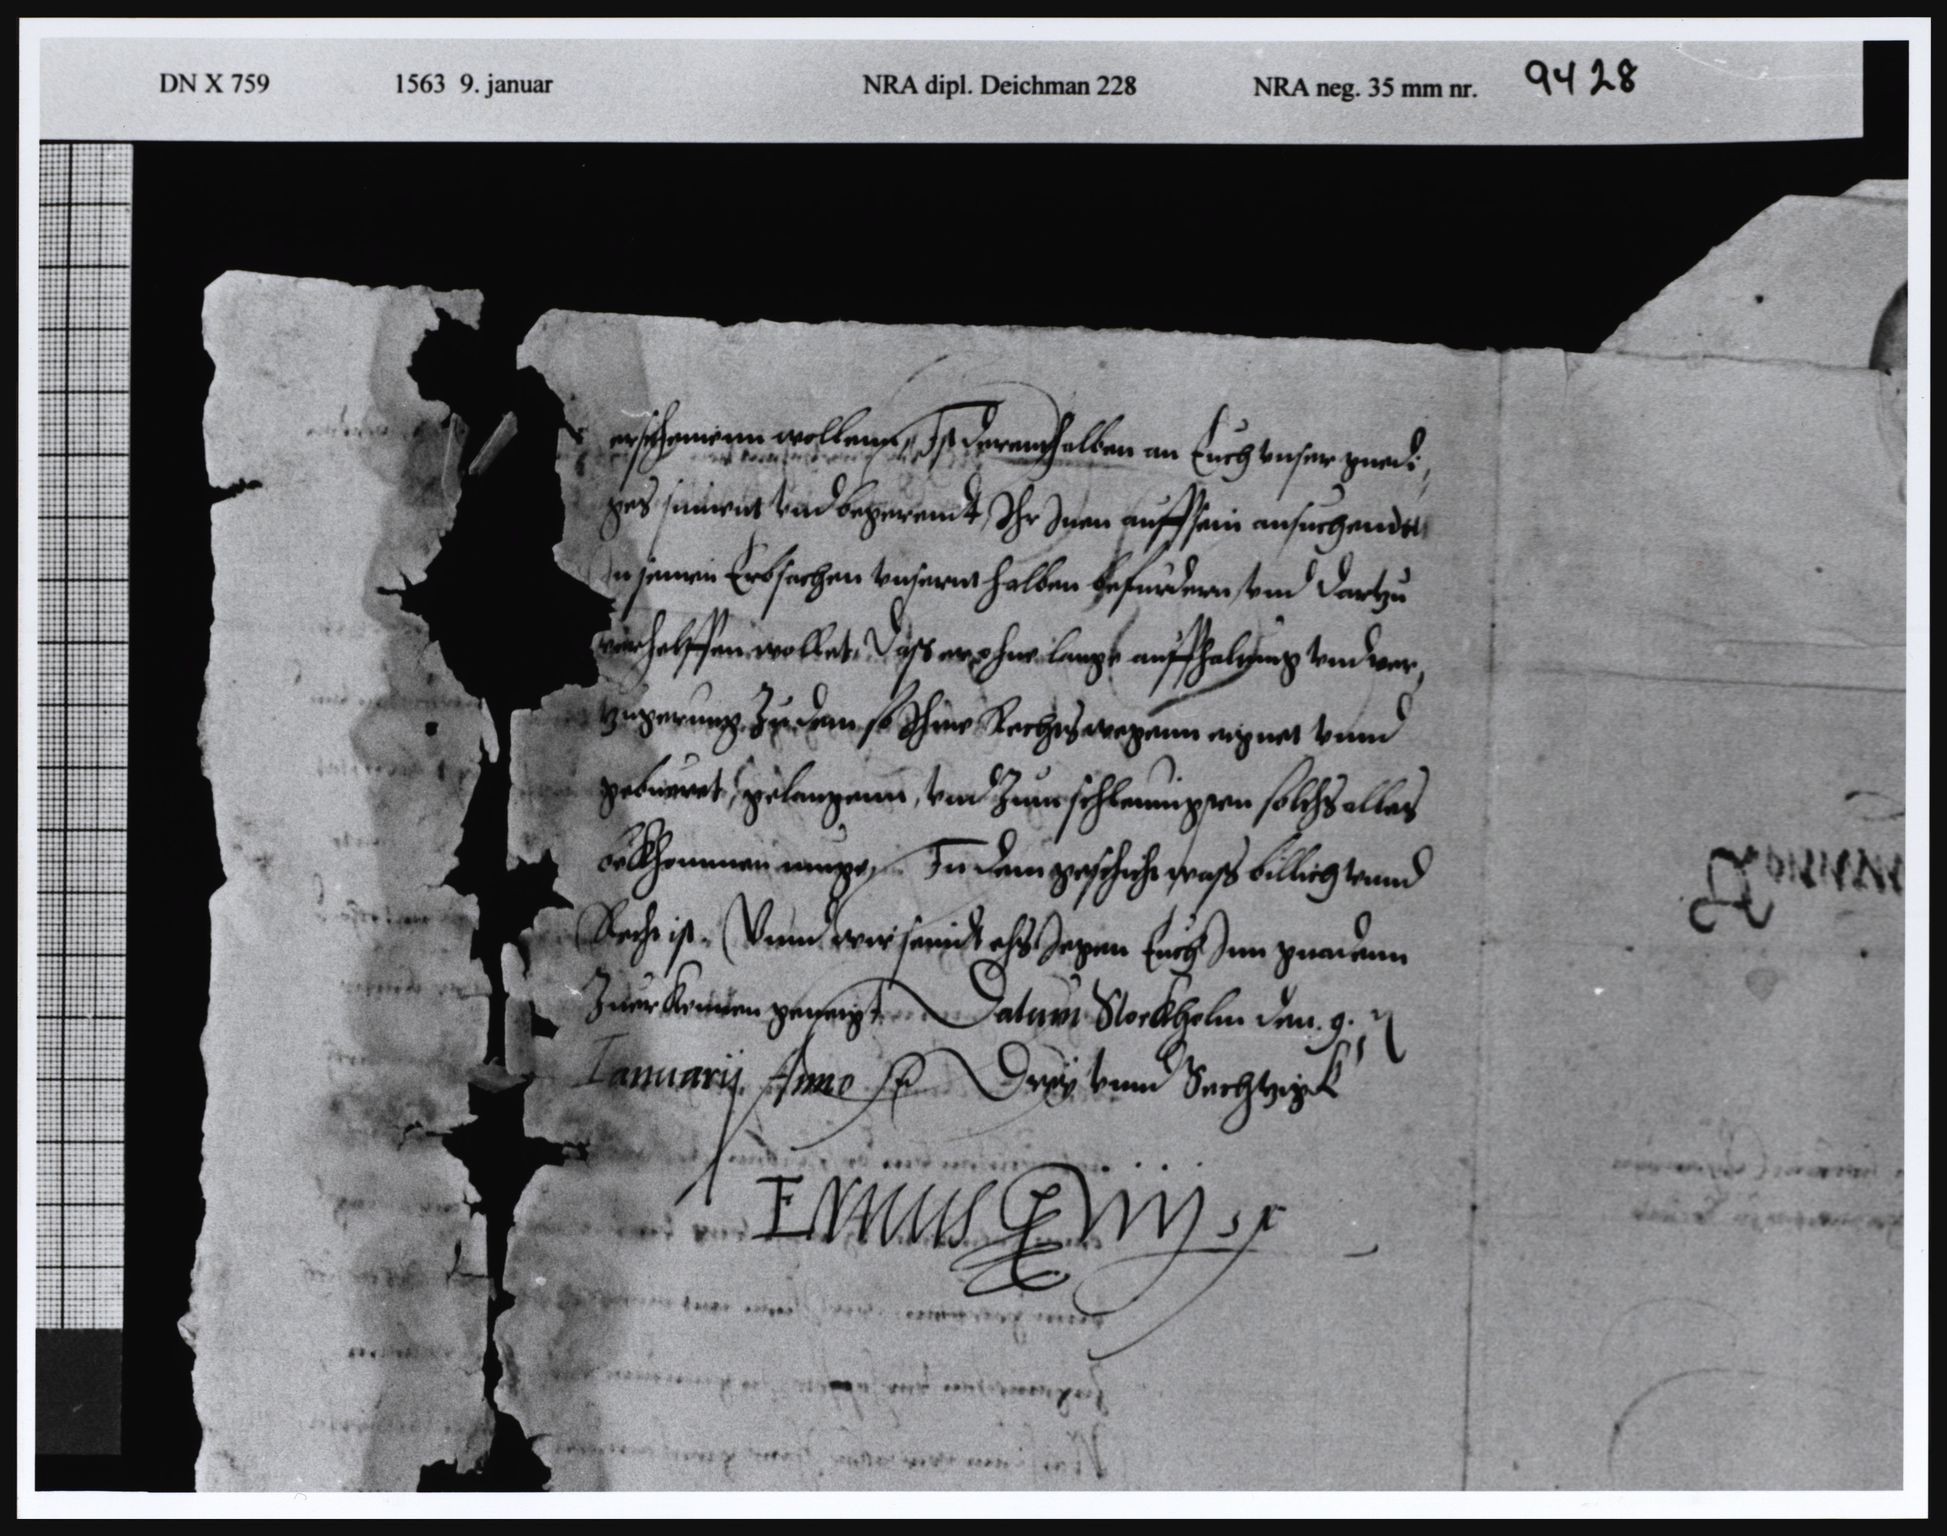 DN X 759 1563 9. januar NRA dipl. Deichman 228 NRA neg. 35 mm nr. 9428
erscheinenn wollenn, Ist derennthalben an Euch vnser gnedi,
ges sinnent vnd begerendt, Ihr Inen auff sein ansuchendt
In seinen Erbsachen vnsernt halben befurdern vnd dartzu
verhelffen wollet, Dass er ohne lange auffhaltung vnd ver,
tzugerung, Zu dem so Ihme Rechts wegenn eignet vnnd
geburet, gelangenn, vnd Zum schleunigsten solchs alles
bekhommen muge, In dem geschicht wass billich vnnd
Recht ist. Vnnd wir seindt ehs gegen Euch Inn gnadenn
Zuerkennen geneigt Datum Stockholm den. 9.
Ianuarij. Anno Drey vnnd Sechtzigk